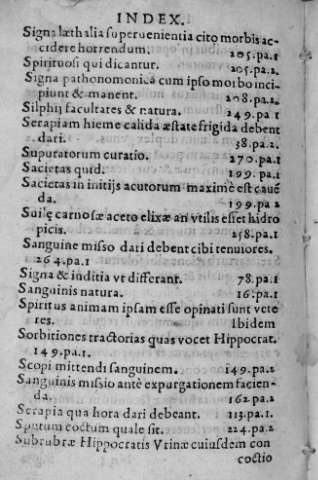 INDEX.
Signa læthalia superuenientia cito morbis ac-
cidere horrendum. 205.pa.1
Spirituosi qui dicantur. 205.pa.2.
Signa pathonomonica cum ipso morbo inci-
piunt & manent. 208.pa.2.
Silphij facultates & natura. 249.pa 1
Serapiam hieme calida æstate frigida debent
dari. 38.pa.2.
Supuratorum curatio. 270.pa.1
Sacietas quid. 199.pa.1
Sacietas in initijs acutorum maximè est cauẽ
da. 199.pa 2
Suilę carnosæ aceto elixæ an vtilis esset hidro
picis. 258.pa.1
Sanguine misso dari debent cibi tenuiores.
264.pa.1
Signa & inditia vt differant. 78.pa.1
Sanguinis natura. 16.pa.1
Spiritus animam ipsam esse opinati sunt vete
res. Ibidem
Sorbitiones tractorias quas vocet Hippocrat.
149.pa.1.
Scopi mittendi sanguinem. 149.pa.2
Sanguinis missio ante expurgationem facien-
da. 162.pa.2
Serapia qua hora dari debeant. 113.pa.1.
Sputum coctum quale sit. 224.pa.2
Subrubræ Hippocratis Vrinæ cuiusdem con
coctio